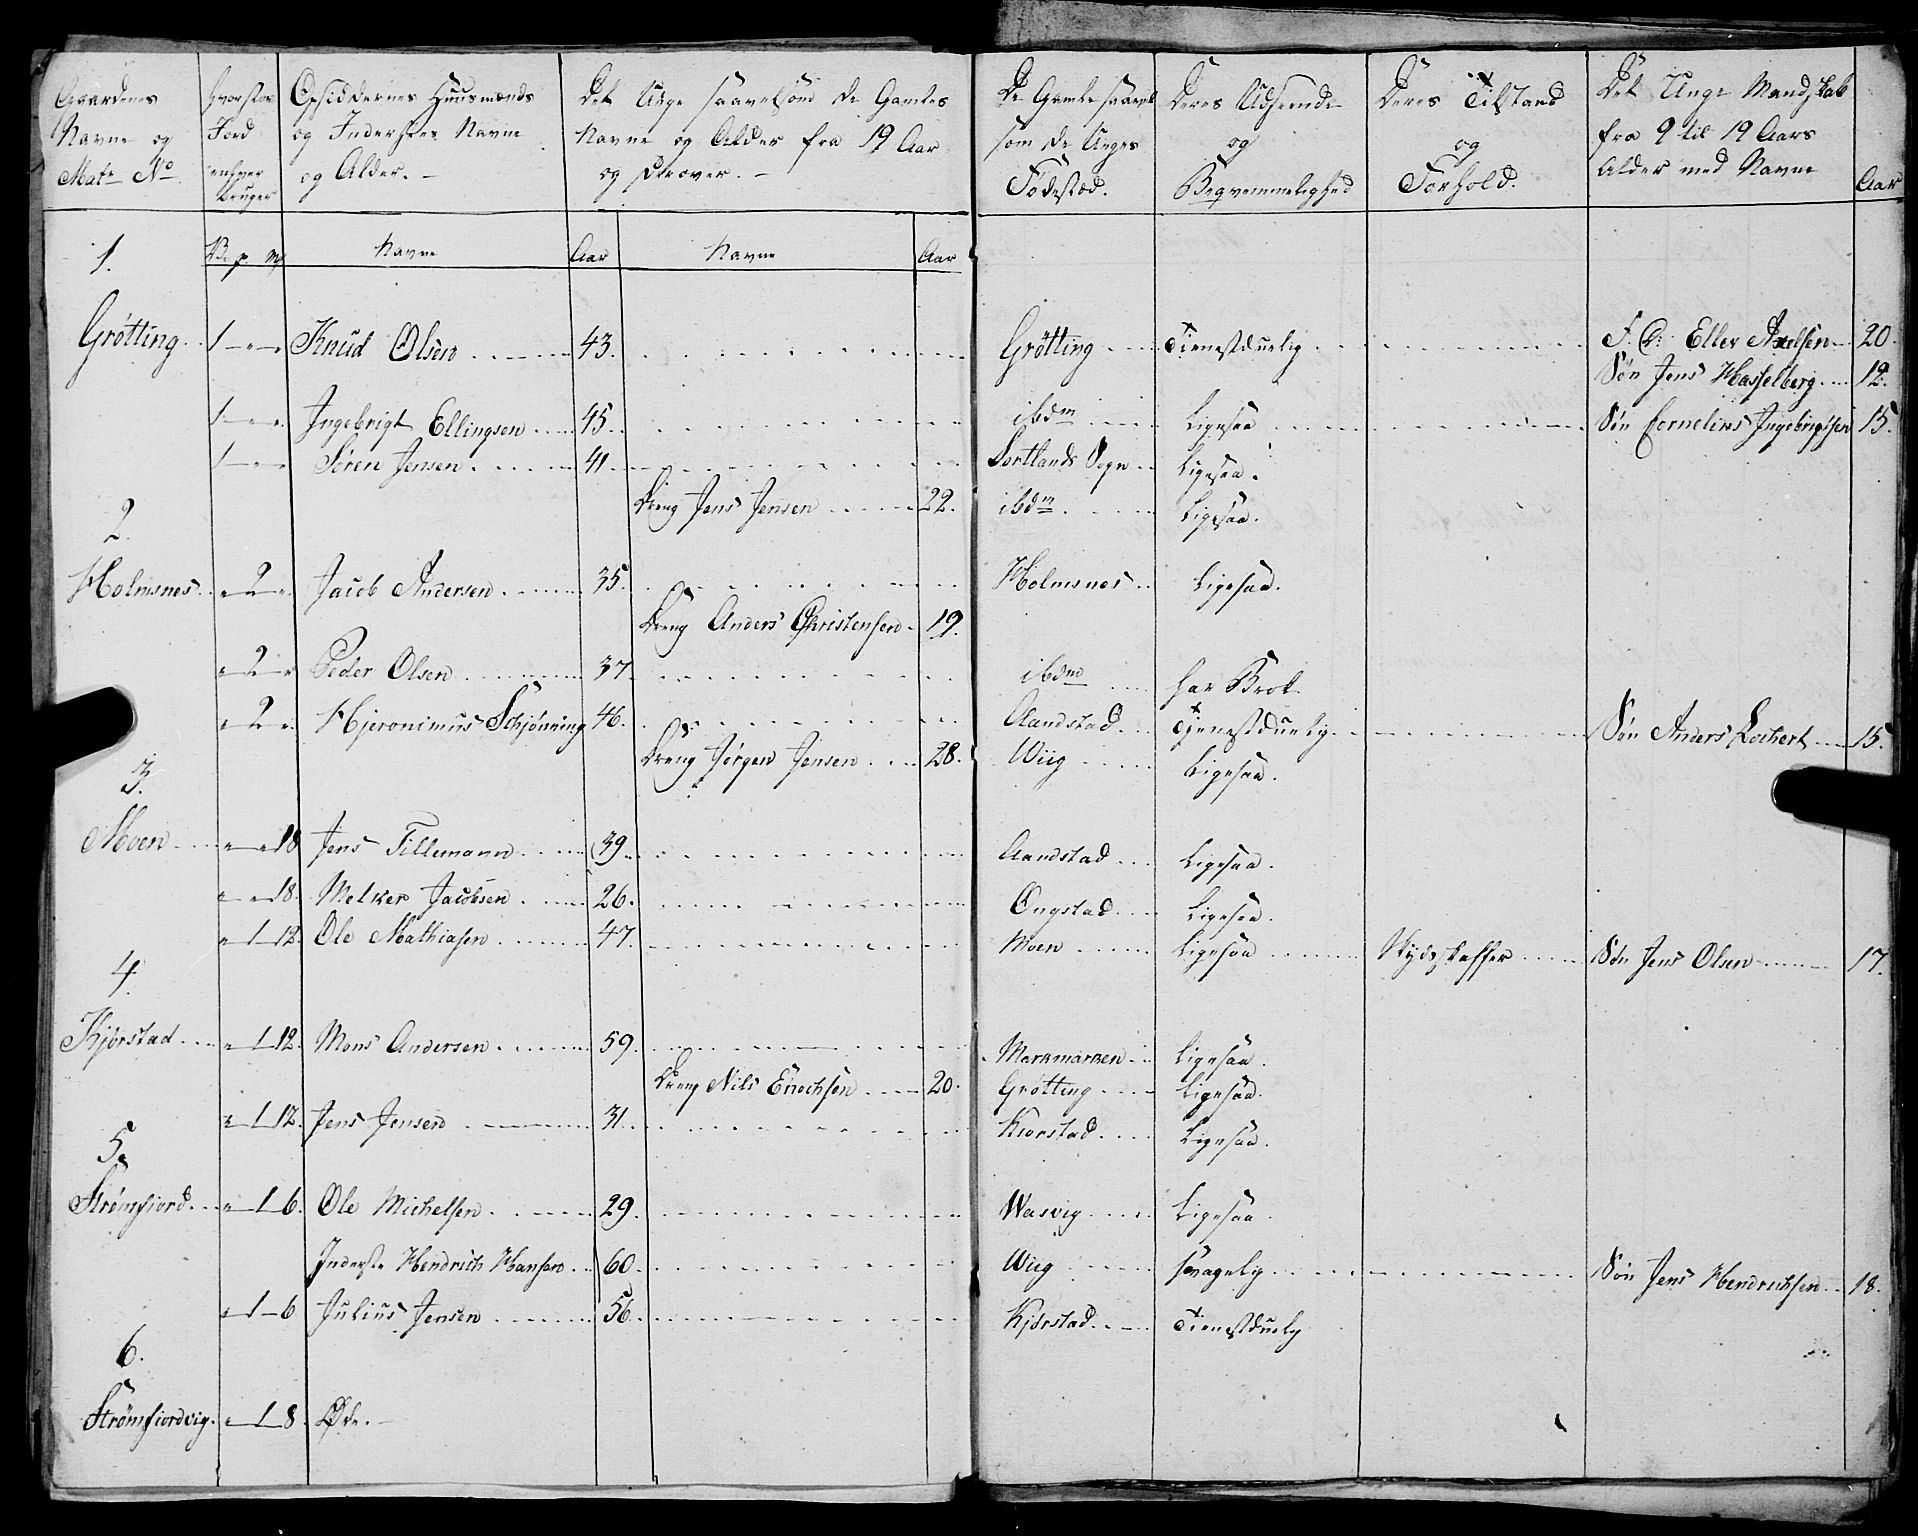 Gaardenes Navne og Matr No.
Hvor stor Jord enhver bruger
Opsiddernes Huusmænds og Inderstes Navne og Alder. -
Det Unge saavelsom de Gamles Navne og Alder fra 19 Aar og derover. -
De Gamle saavel som de Unges Fødestæd.
Deres Udseende og Beqvemmelighed
Deres Tilstand og Forhold.
Det Unge Mandskab fra 9 til 19 Aars Alder med Navne
Aar
B. p. mk Navne Aar Navne Aar
1.
Grøtting 1 - " - " Knud Olsen 43. Grøtting Tienestduelig Eller Axelsen 20.
Søn Jens Hasselberg 12.
1 - " " Ingebrigt Ellingsen 45 ibdm Ligesaa Søn Cornelius Ingebrigtsen 15.
1 - " - " Sören Jensen 41 Sortlands Sogn Ligesaa.
Dreng Jens Jensen 22. ibdm Ligesaa.
2.
Holmsnes " 2 " Jacob Andersen 35. Holmsnes Ligesaa.
Dreng Anders Christensen 19.
" 2 " Peder Olsen 37 ibdm har Brok
" 2 " Hjeronimus Schjønning 46. Aandstad Tienestduelig Søn Anders Lochert 15.
Dreng Jørgen Jensen 28. Wiig Ligesaa.
3.
Moen " - " 18 Jens Tillemann 39 Aandstad Ligesaa.
" - " 18. Melker Jacobsen 26. Ongstad Ligesaa.
" 1 - 12. Ole Mathiasen 47 Moen Ligesaa Skydsskaffer Søn Jens Olsen 17.
4.
Kjørstad " 1 12. Mons Andersen 59 Markmarken Ligesaa.
Dreng Nils Enochsen 20. Grøtting Ligesaa.
" 1 12. Jens Jensen 31. Kiorstad Ligesaa.
5.
Strømfiord " 1 6. Ole Michelsen 29. Wasvig Ligesaa.
Inderste Hendrich Hansen 60 Wiig svagelig Søn Jens Hendrichsen 18.
" 1 - 6 Julius Jensen 56 Kjørstad Tienestduelig
6.
Strømfiordvig. " 1 8. Øde. -